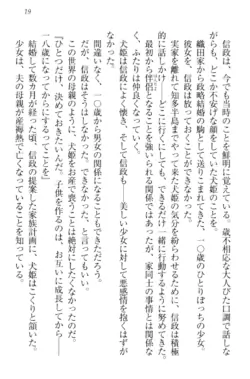 19
信政は、今でも当時のことを鮮明に覚えている。歳不相応な大人びた口調で話しな
がらも、不安に瞳を揺らしていた犬姫のことを。
織田家から政略結婚の駒として送りこまれてきた、一〇歳のひとりぼっちの少女。
実家を離れて知多半島までやって来た犬姫の気分が紛らわせるために、信政は積極
的に声をかけ、どこに行くにも、できるだけ一緒に行動するように努めてきた。
最初から伴侶となることを強いられる関係ではあったが、家同士の事情とは関係な
く、ふたりは仲良くなっていった。
犬姫も、そして信政も――美しい少女に対して悪感情を抱くはずが
間違いなく、一〇歳から男女の関係になることもできただろう。
だが、信政はそうはしなかった。できなかった、と言ってもいい。
この世界の母親のように、犬姫を失うことは絶対にしたくなかったからだ。
『ひとつだけ、決めておきたいんだ。子供を作るのは、お互いに成長してから――』
結婚して数カ月が経った頃、信政の提案した家族計画に、犬姫はこくりと頷いた。
少女は、夫の母親が産褥熱で亡くなっていることを知っている。